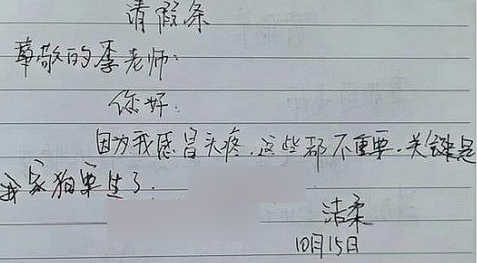 请假条
尊敬的李老师：
你好：
因为我感冒头疼，这些都不重要，关键是
我家狗要生了．
洁柔
10月15日